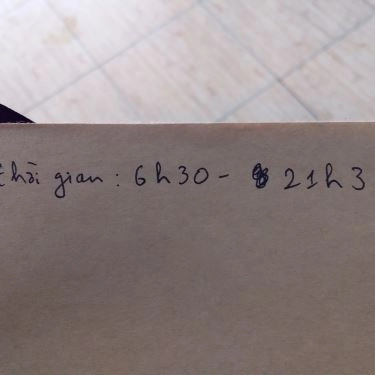 thời gian: 6h30 - 21h3